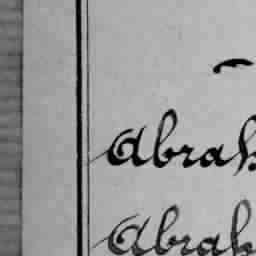 Abrah
Abrah